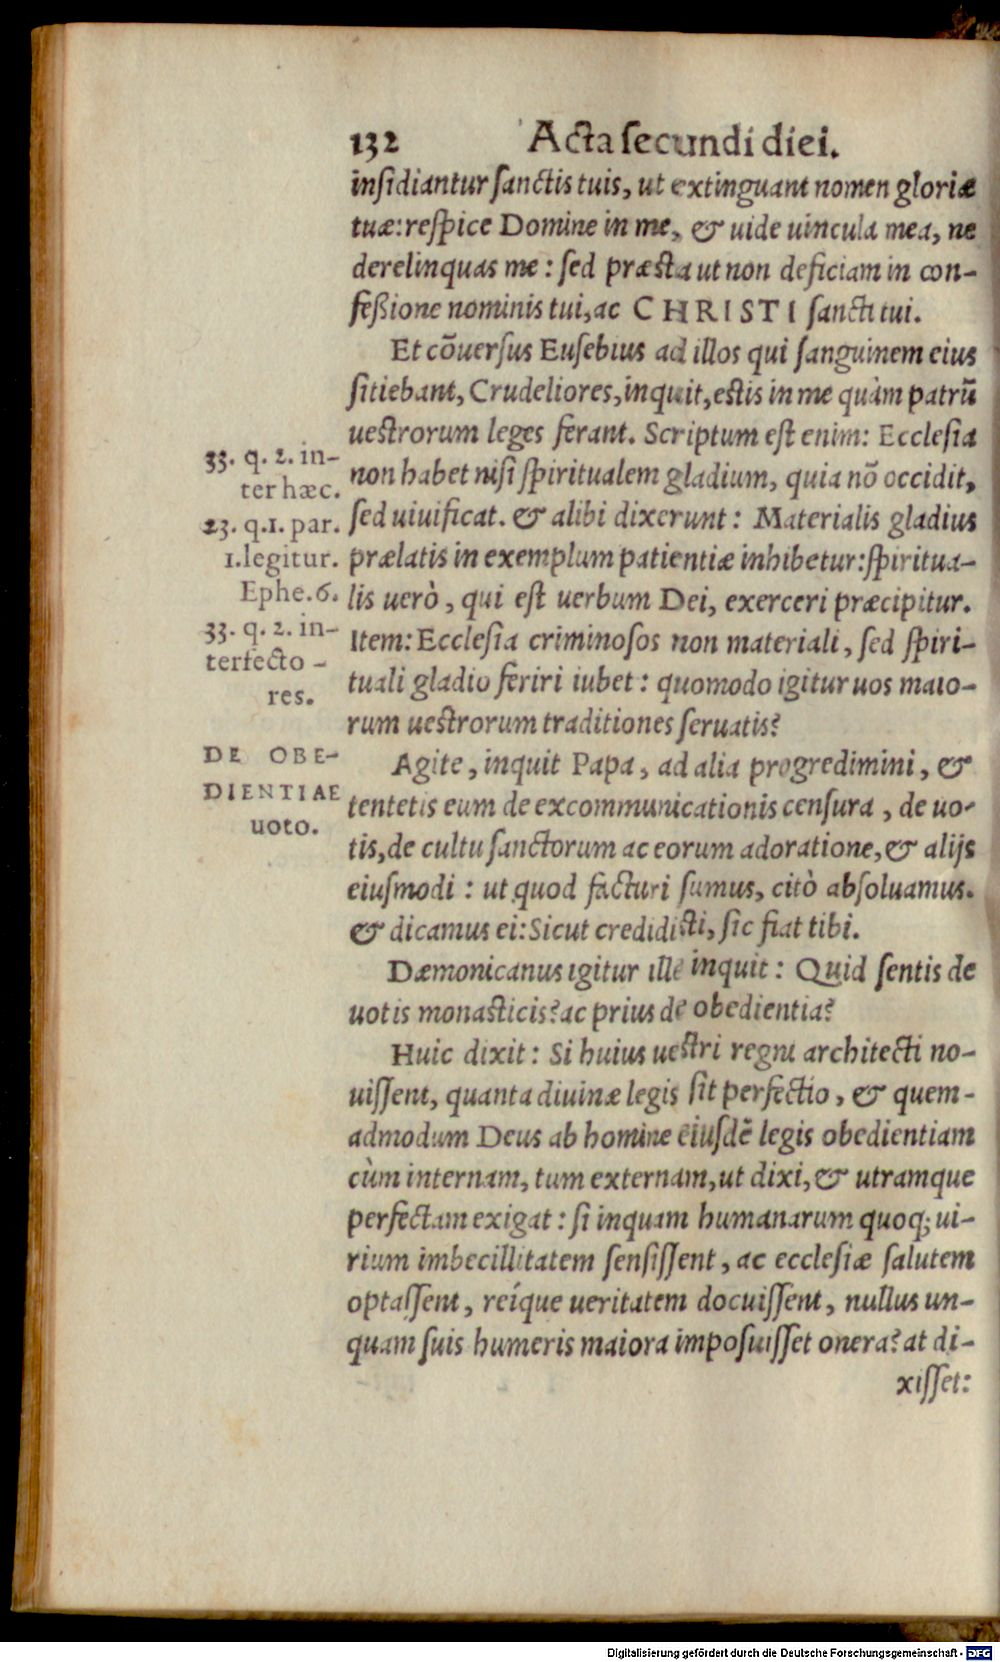 132 Acta ſecundi diei.
inſidiantur ſanctis tuis, ut extinguant nomen gloriæ
tuæ: reſpice Domine in me, & uide uincula mea, ne
derelinquas me: ſed præsta ut non deficiam in con-
feßione nominis tui, ac CHRISTI ſancti tui.
Et cōuerſus Euſebius ad illos qui ſanguinem eius
ſitiebant, Crudeliores, inquit, estis in me quàm patrū
uestrorum leges ferant. Scriptum eſt enim: Eccleſia
33. q. 2. in-
ter hæc.
non habet niſi ſpiritualem gladium, quia nō occidit,
23. q. 1. par.
1. legitur.
ſed uiuificat. & alibi dixerunt: Materialis gladius
prælatis in exemplum patientiæ inhibetur: ſpiritua-
Ephe. 6.
lis uerò, qui eſt uerbum Dei, exerceri præcipitur.
33. q. 2. in-
terfecto-
res.
Item: Eccleſia criminoſos non materiali, ſed ſpiri-
tuali gladio feriri iubet: quomodo igitur uos maio-
rum uestrorum traditiones ſeruatis?
DE OBE-
DIENTIAE
uoto.
Agite, inquit Papa, ad alia progredimini, &
tentetis eum de excommunicationis cenſura, de uo-
tis, de cultu ſanctorum ac eorum adoratione, & alijs
eiuſmodi: ut quod facturi ſumus, citò abſoluamus.
& dicamus ei: Sicut credidisti, ſic fiat tibi.
Dæmonicanus igitur ille inquit: Quid ſentis de
uotis monasticis? ac prius de obedientia?
Huic dixit: Si huius uestri regni architecti no-
uiſſent, quanta diuinæ legis ſit perfectio, & quem-
admodum Deus ab homine eiuſdē legis obedientiam
cùm internam, tum externam, ut dixi, & utramque
perfectam exigat: ſi inquam humanarum quoq; ui-
rium imbecillitatem ſenſiſſent, ac eccleſiæ ſalutem
optaſſent, reíque ueritatem docuiſſent, nullus un-
quam ſuis humeris maiora impoſuiſſet onera? at di-
xiſſet:
Digitalisierung gefördert durch die Deutsche Forschungsgemeinschaft - DFG